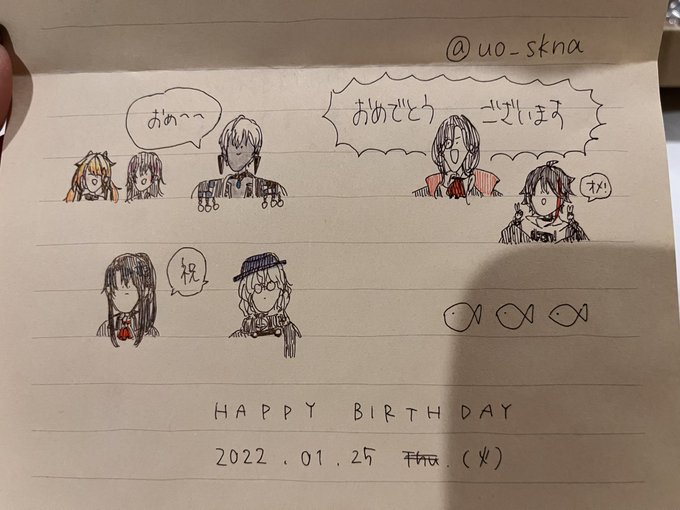 @uo_skna
おめ〜〜
おめでとう ございます
オメ!
祝
HAPPY BIRTHDAY
2022.01.25 Thu.(火)